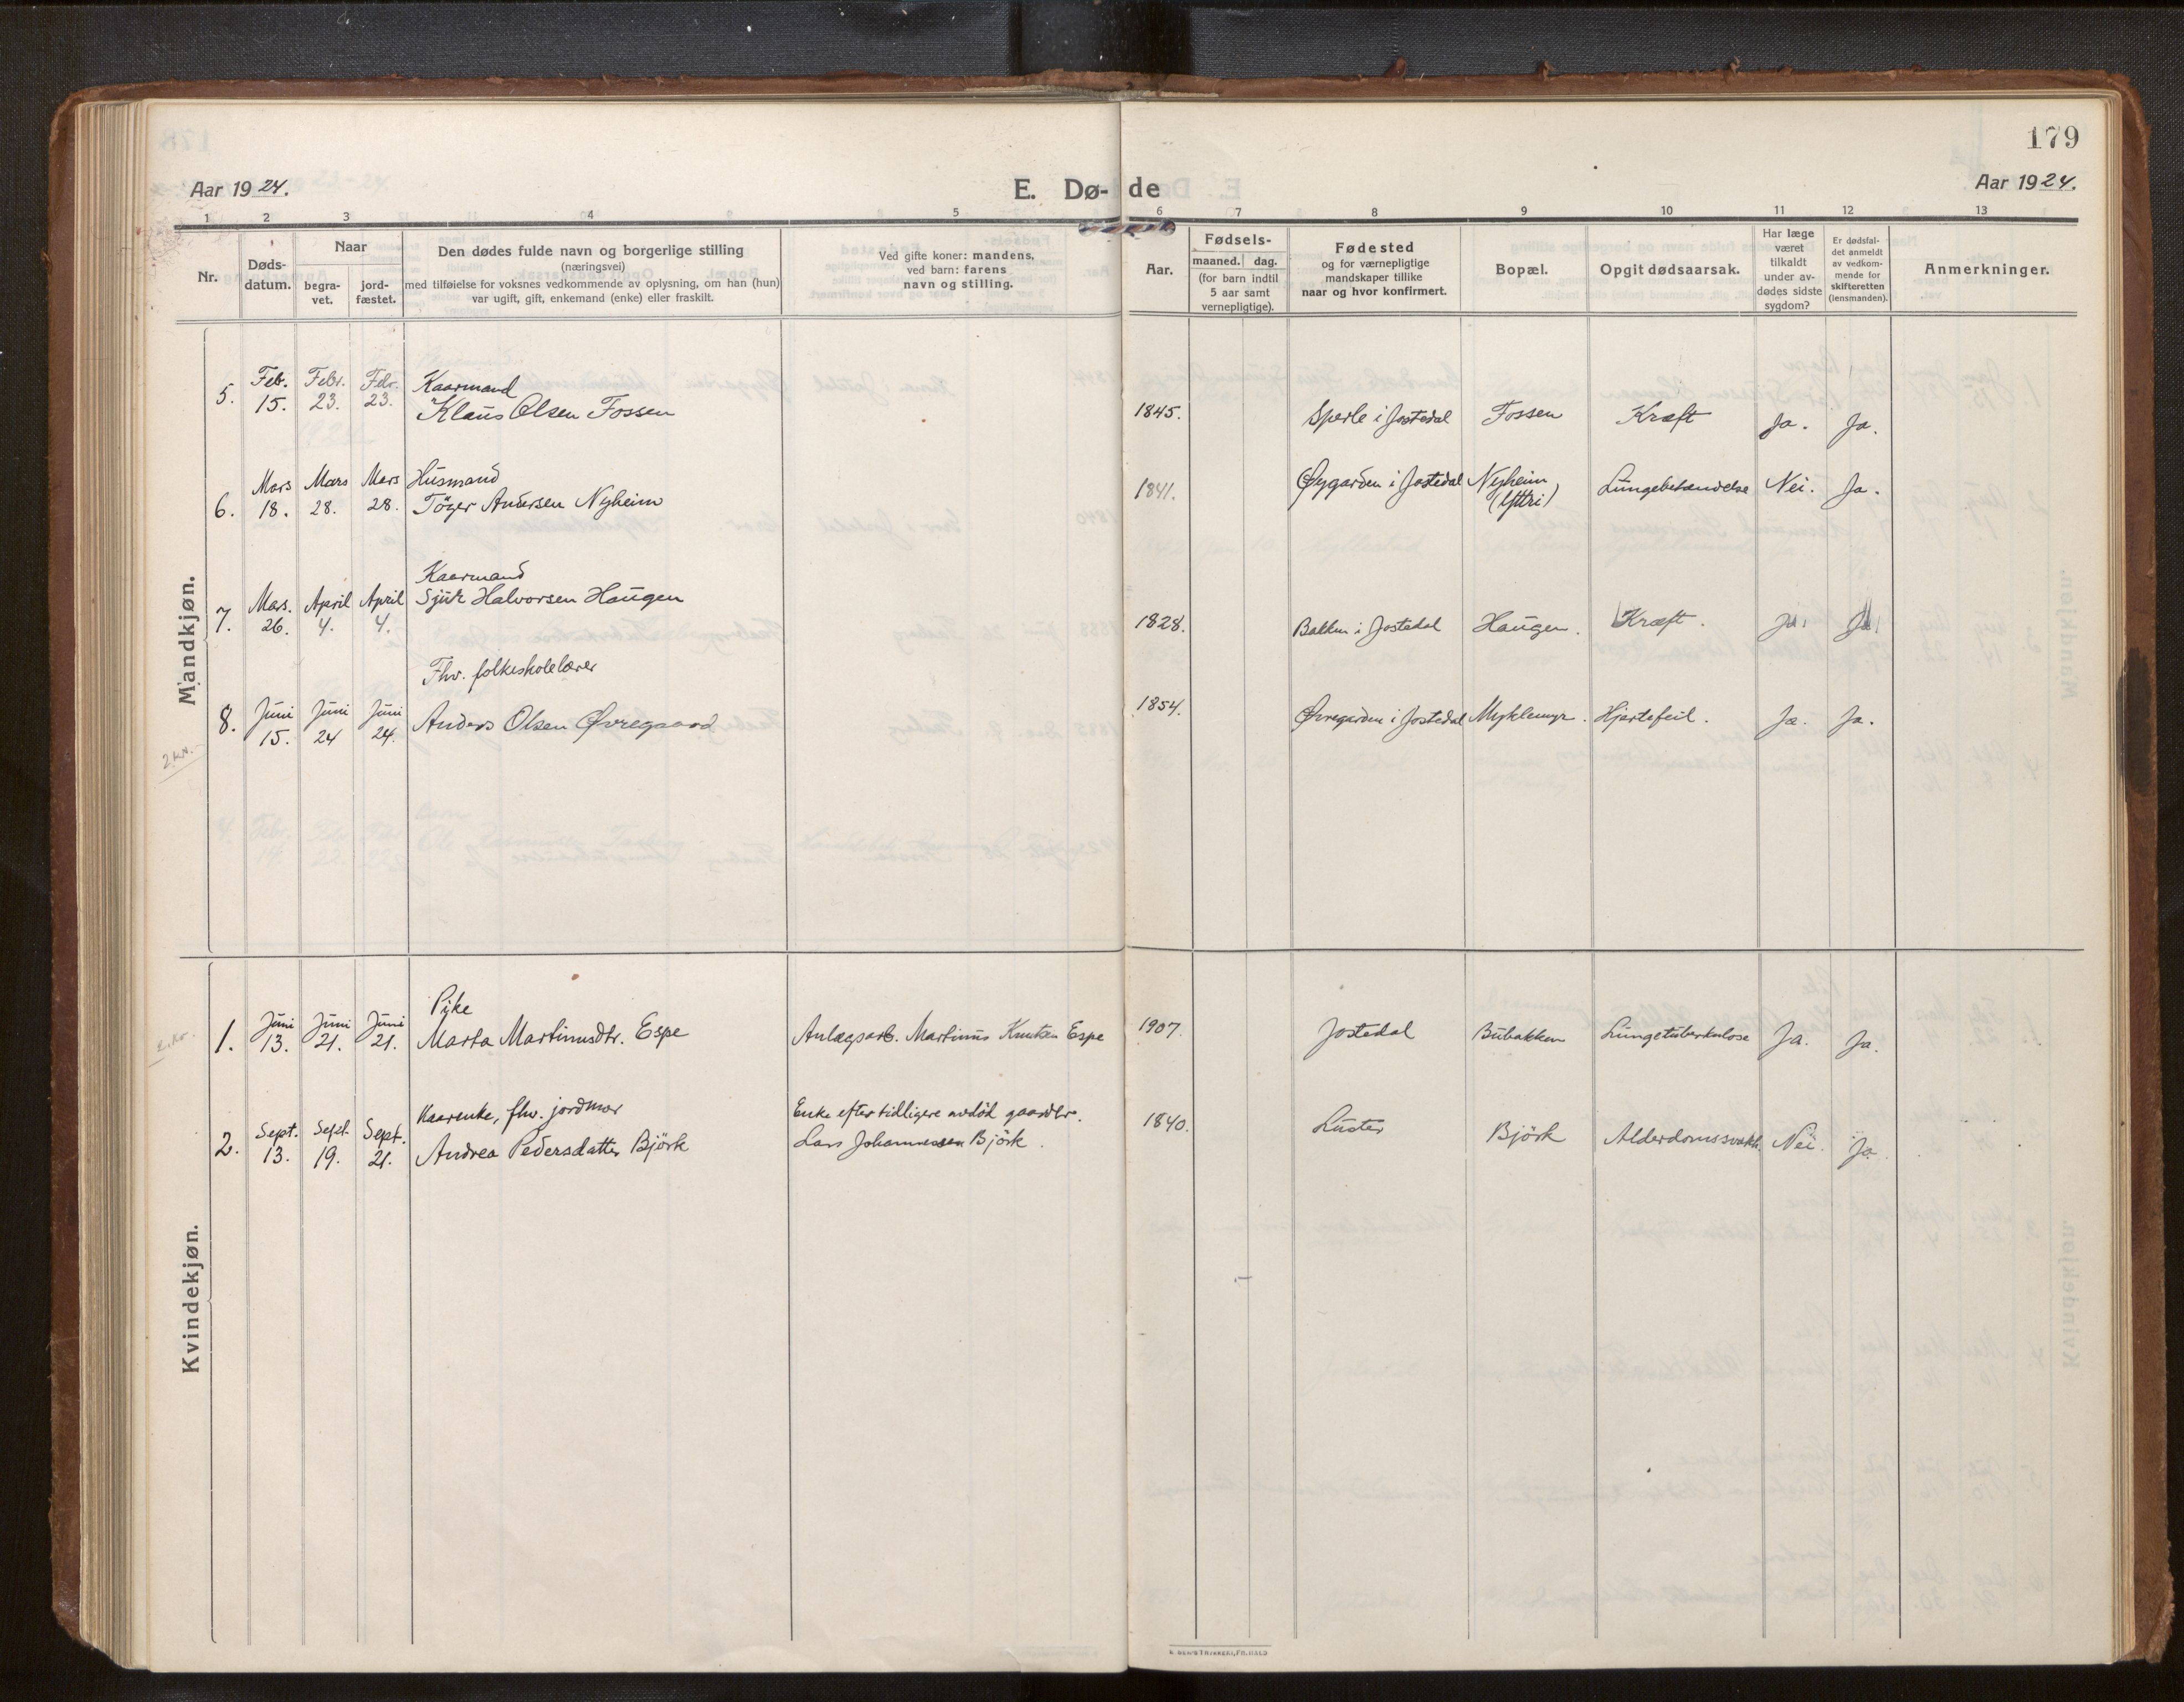 179
Aar 1924.
E. Dø-de
Aar 1924.
1 2 3 4 5 6 7 8 9 10 11 12 13
Nr.
Døds-
datum.
Naar
begra-
vet.
jord-
fæstet.
Den dødes fulde navn og borgerlige stilling
(næringsvei)
med tilføielse for voksnes vedkommende av oplysning, om han (hun)
var ugift, gift, enkemand (enke) eller fraskilt.
Ved gifte koner: mandens,
ved barn: farens
navn og stilling.
Aar.
Fødsels-
maaned. dag.
(for barn indtil
5 aar samt
vernepligtige).
Fødested
og for værnepligtige
mandskaper tillike
naar og hvor konfirmert.
Bopæl.
Opgit dødsaarsak.
Har læge
været
tilkaldt
under av-
dødes sidste
sygdom?
Er dødsfal-
det anmeldt
av vedkom-
mende for
skifteretten
(lensmanden).
Anmerkninger.
Mandkjøn.
Feb. Febr. Febr. Kaarmand
5. 15. 23. 23. Klaus Olsen Fossen 1845. Sperle i Jostedal Fossen Kræft Ja. Ja.
Mars Mars Mars Husmand
6. 18. 28. 28. Töger Andersen Nyheim 1841. Øygarden i Jostedal Nyheim Lungebetændelse Nei. Ja.
(Yttri)
Kaarmand
Mars. April April Sjur Halvorsen Haugen
7. 26. 4. 4. 1828. Bakken i Jostedal Haugen. Kræft. Ja. Ja.
Fhv. folkeskolelærer
Juni Juni Juni
8. 15. 24 24. Anders Olsen Øvregaard 1854. Øvregarden i Jostedal Myklemyr. Hjertefeil. Ja. Ja.
2 kr.
Kvindekjøn.
Pike
Juni Juni Juni
1. 13. 21. 21. Marta Martinusdtr. Espe Anlægsarb. Martinus Knutsen Espe 1907. Jostedal Bubakken Lungetuberkulose Ja. Ja.
Kaarenke, fhv. jordmor Enke efter tidligere avdöd gaardbr.
Sept. Sept. Sept.
2. 13. 19. 21. Andrea Pedersdatter Björk Lars Johannessen Björk. 1840. Luster Björk Alderdomssvakh. Nei. Ja.